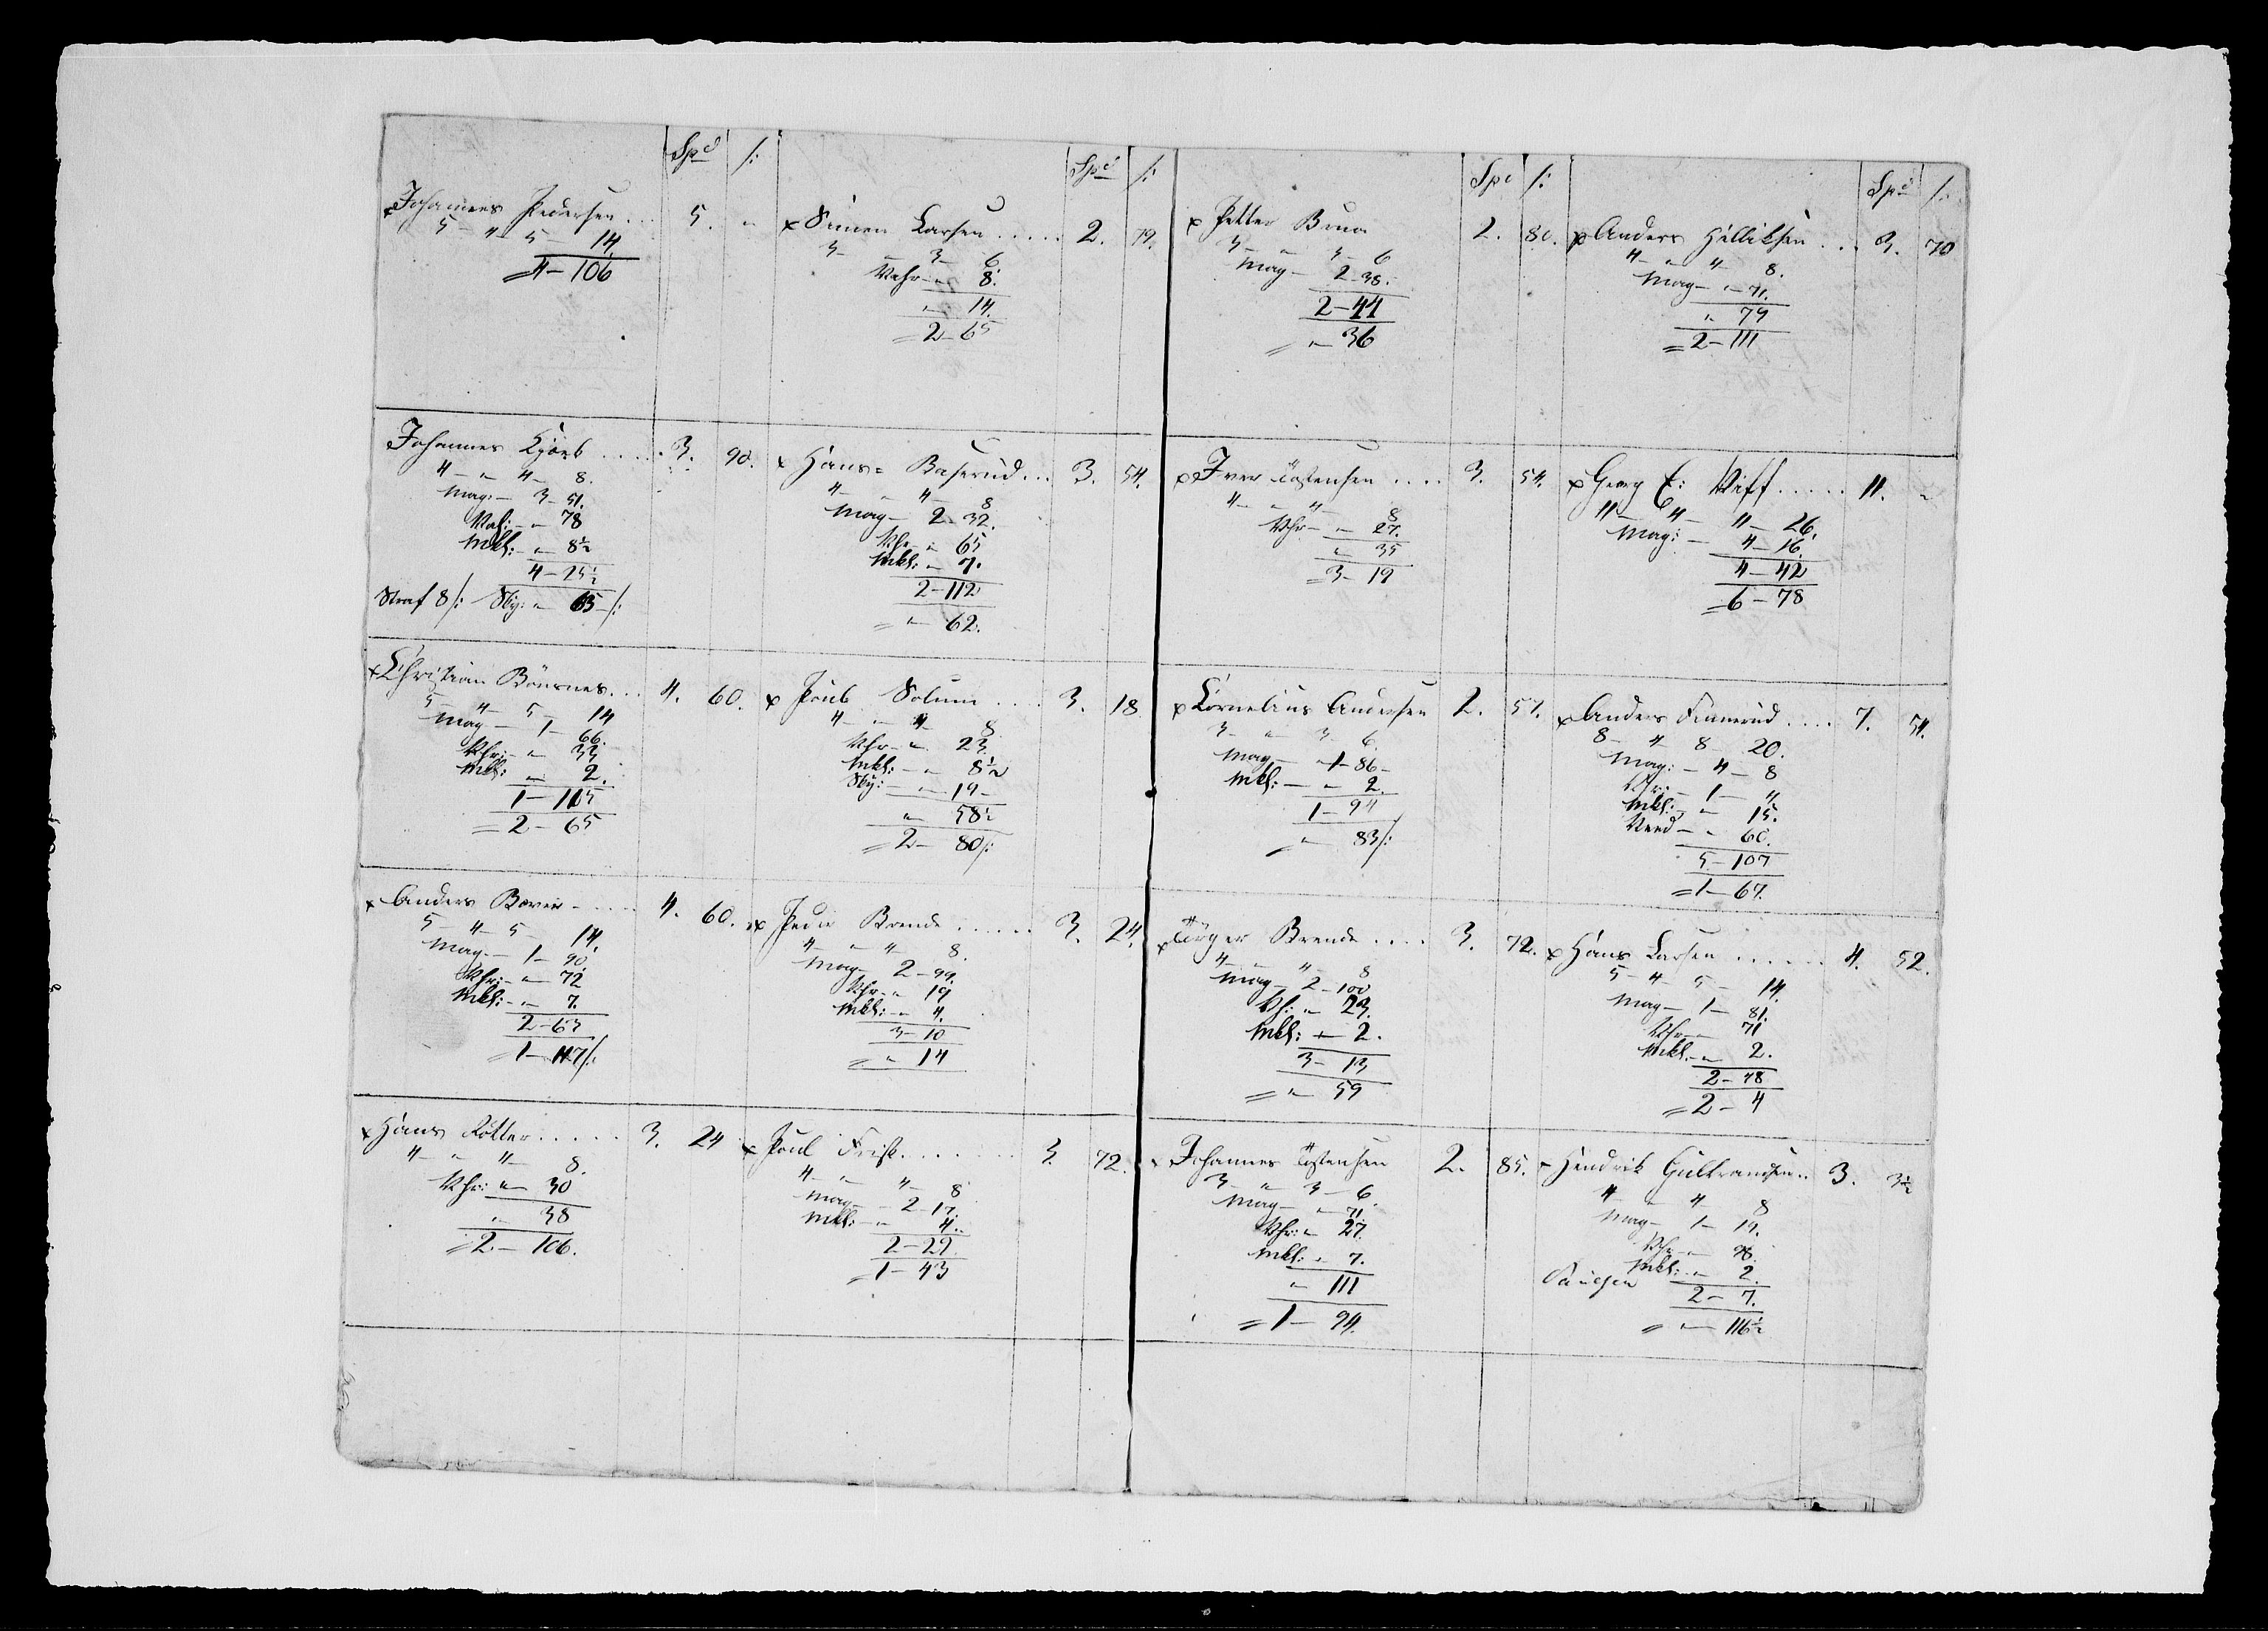 Spd /:
x Johannes Pedersen... 5. "
5 - 4 - 5 - 14.
= 4 - 106
Johannes Kjörb..... 3. 90.
4 - " 4 - 8.
Mag: - 3 - 51.
Vah: - " 78
Mkl: - " 8½
4 - 25½
Straf 8/: Sky: " 63 /:
x Christian Bönsnes... 4. 60.
5 - 4 - 5 - 14
Mag - 1 - 66.
Vhr: - " 33
Mkl: - " 2.
1 - 115
= 2 - 65
x Anders Bover..... 4. 60.
5 4 - 5 - 14.
Mag - 1 - 90.
Vhr: - " 72
Mkl: - " 7.
2 - 63
= 1 - 117/:
x Hans Rötter..... 3. 24
4 - " 4 - 8.
Vhr: " - 30
" 38
= 2 - 106.
Spd /:
x Simen Larsen..... 2. 79.
3 - - 3 - 6.
Vahr - " 8.
" - 14.
= 2 - 65
x Hans = Baserud... 3. 54.
4 - " 4 - 8
Mag - 2 - 32.
Vhr - " 65
Mkl: - " 7.
2 - 112
= " - 62.
x Poul Solum.... 3. 18
4 - " - 4 - 8
Vhr - " 23.
Mkl: - " 8½
Sky: - " - 19 -
" 58½
= 2 - 80/:
x Peder Brende...... 3. 24.
4 - " 4 - 8.
Mag - 2 - 99.
Vhr - " 19
Mkl: - " 4.
3 - 10
= " 14
x Poul Frisk....... 3. 72.
4 - " 4 - 8
Mag - 2 - 17.
Mkl: - " 4.
2 - 29
= 1 - 43
Spd /:
x Petter Bruun 2. 80.
3 - " 3 - 6
Mag - 2 - 38.
2 - 44
= " - 36
x Iver Tostensen.... 3. 54.
4 - " 4 - 8
Vhr - " - 27.
" 35
= 3 - 19
x Cornelius Andersen 2. 57.
3 - " 3 - 6.
Mag - 1 - 86 -
Mkl: - " 2.
1 - 94
= " 83/:
x Törger Brende.... 3. 72.
4 - " 4 - 8
Mag - 2 - 100
Vh: " - 23.
Mkl: " 2.
3 - 13
= " - 59
x Johannes Tostensen 2. 85.
3 - " 3 - 6.
Mag - " - 71.
Vhr: " 27.
Mkl: " 7.
" 111
= 1 - 94.
Spd /:
x Anders Helliksen... 3. 70
4 - " 4 - 8.
Mag - " - 71.
" 79
= 2 - 111
x Georg E: Veff..... 11. "
11 - 4 - 11 - 26.
Mag: - 4 - 16.
4 - 42
= 6 - 78
x Anders Finnerud.... 7. 54.
8 - 4 - 8 - 20.
Mag: - 4 - 8
Vhr: - 1 - 4
Mkl: - " 15.
Veed - " 60.
5 - 107
= 1 - 67.
x Hans Larsen...... 4. 52.
5 - 4 - 5 - 14.
Mag - 1 - 81.
Vhr - " 71
Mkl. - " 2.
2 - 48
= 2 - 4
- Hendrik Gulbrandsen.. 3. 3½
4 - " 4 - 8
Mag - 1 - 19.
Vhr - " 98.
Mkl: " 2.
2 - 7.
= " - 116½